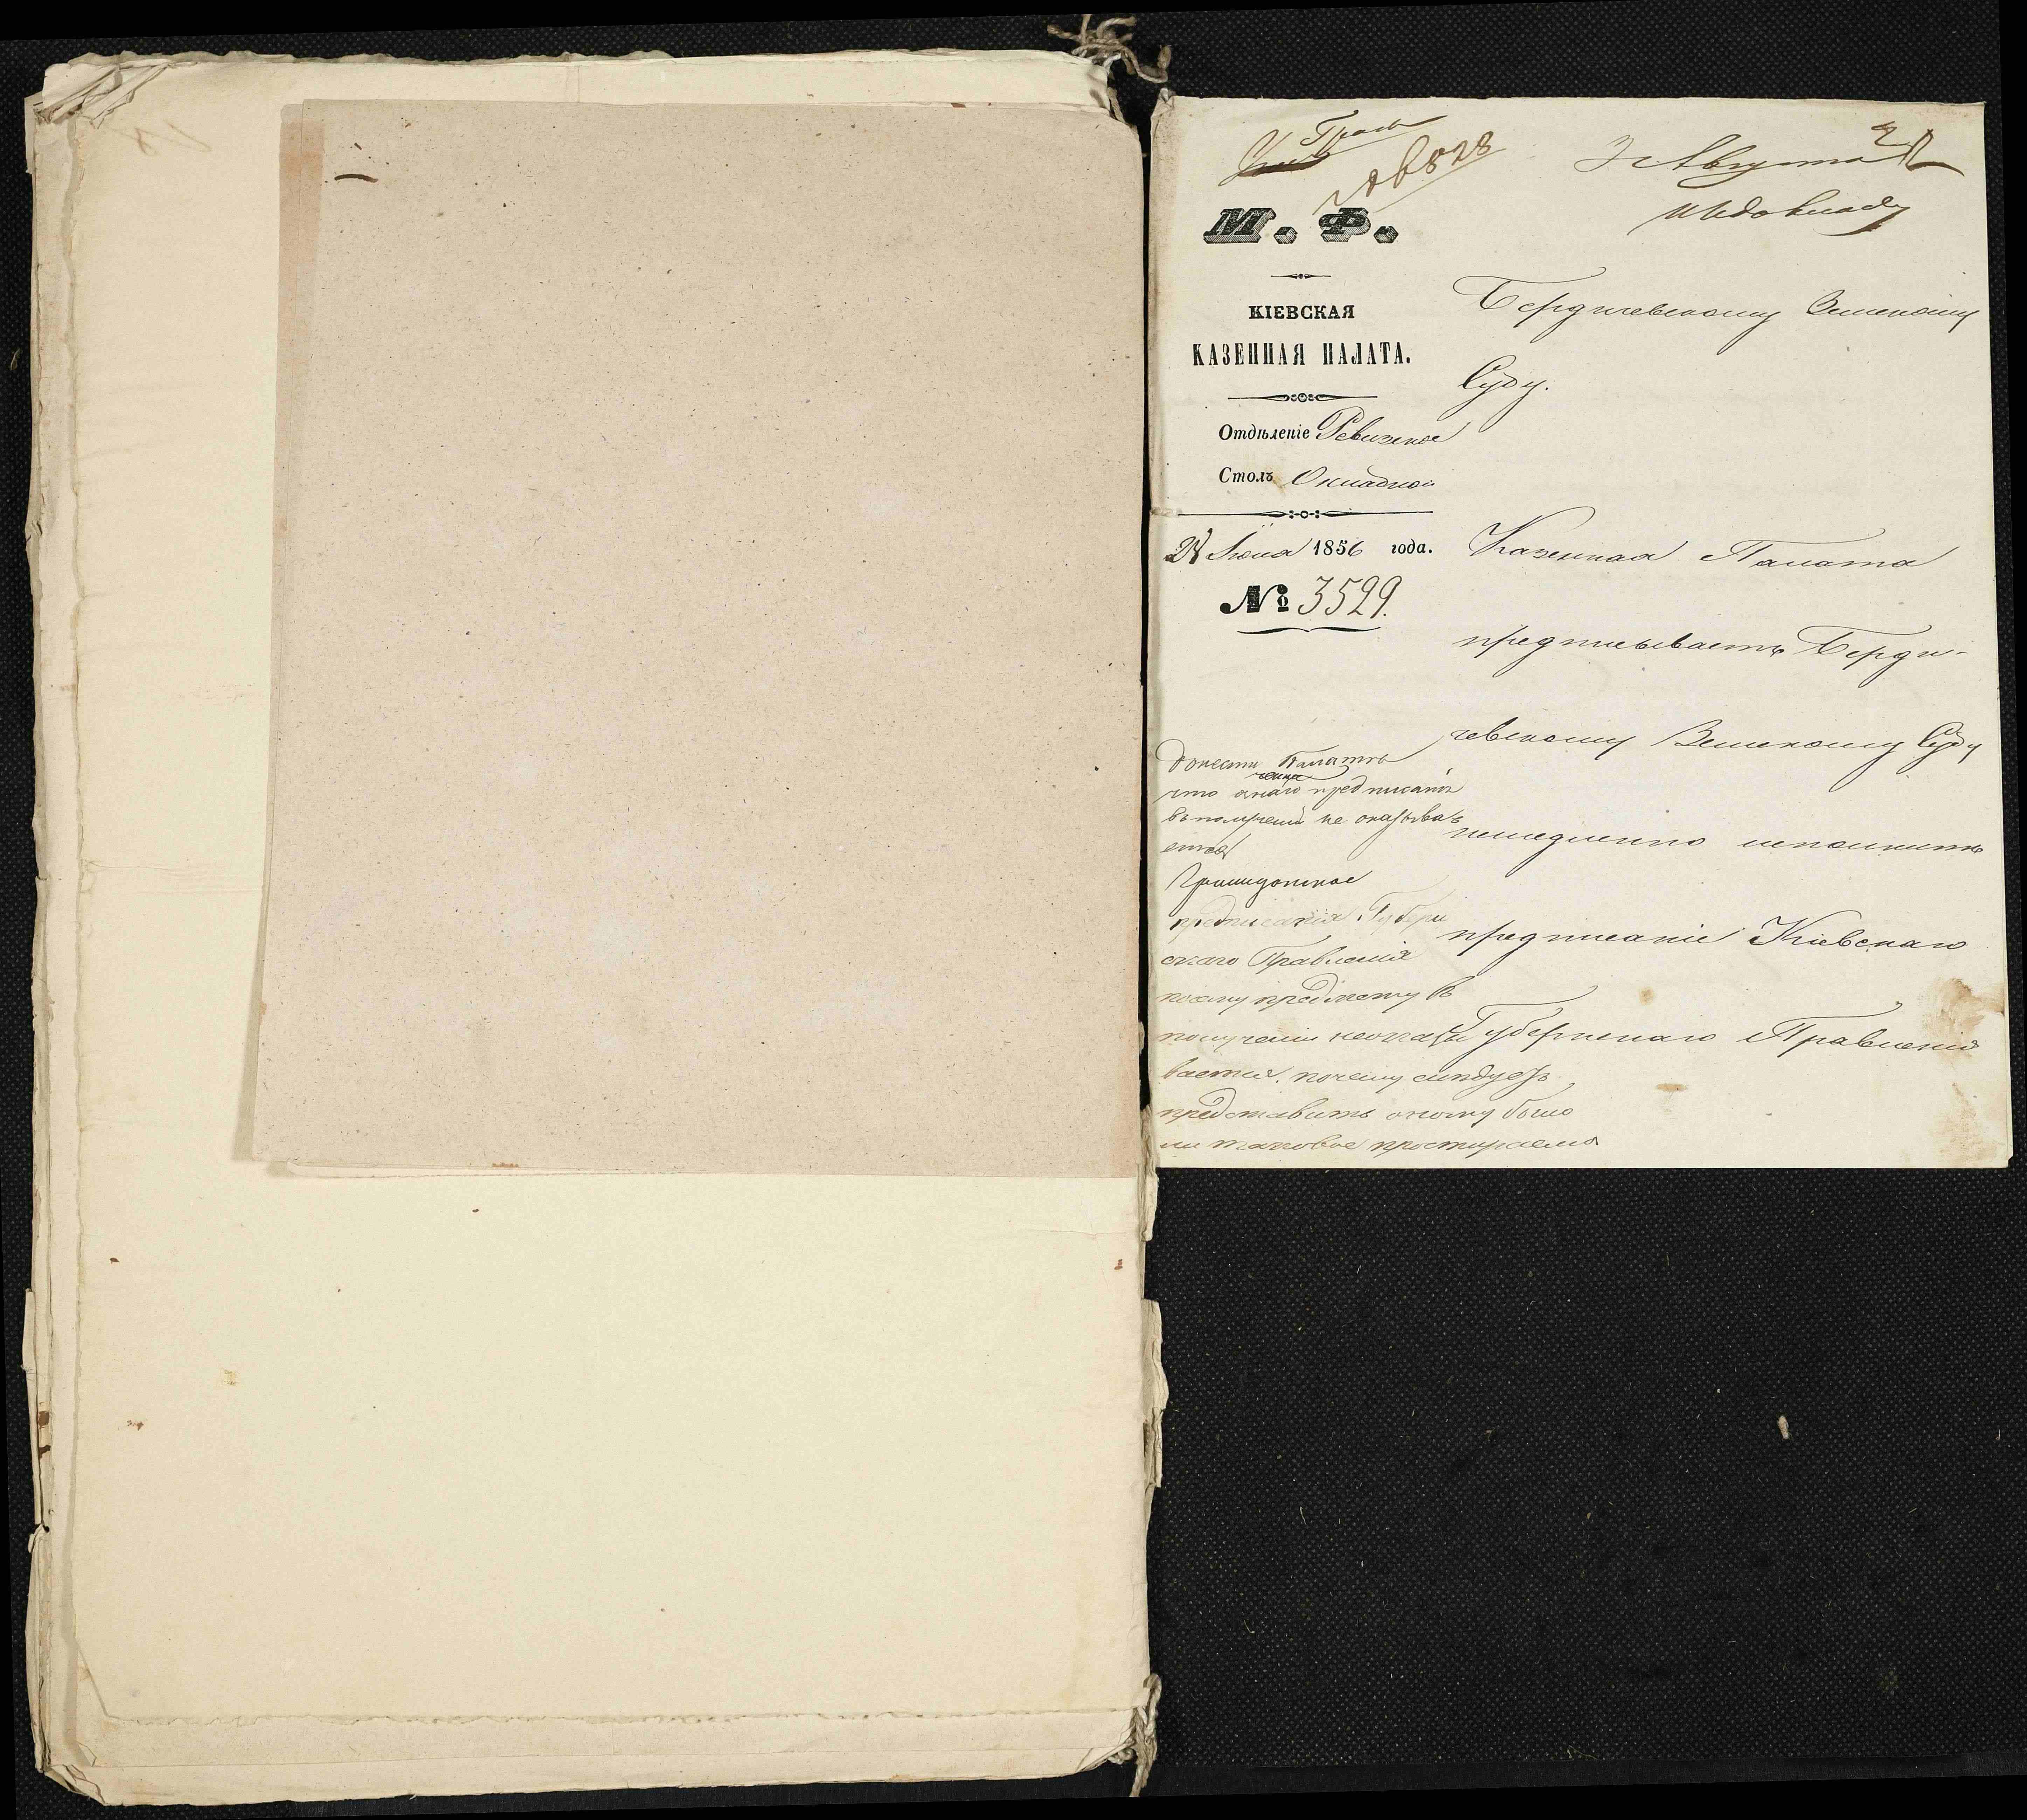 3 Августа
М. Ф.
КІЕВСКАЯ
КАЗЕННАЯ ПАЛАТА.
Отдѣленіе Ревизское
Столъ Окладной
1856 года.
№ 3529.
Бердичевскому Земскому
Суду.
Казенная Палата
предписываетъ Берди-
чевскому Земскому Суду
немедленно исполнить
предписаніе Кіевскаго
Губернскаго Правленія
Донести Палатѣ
что предписанія
въ полученіи не оказыва
ется
предписанія Губерн
скаго Правленія
посему предмету въ
полученіи неоказы
вается. почему слѣдуетъ
представить оному было
ли таковое